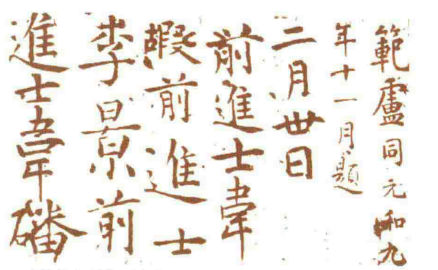 範盧同元和九
年十一月題
二月卅日
前進士韋
前進士
李景前
進士韋磻